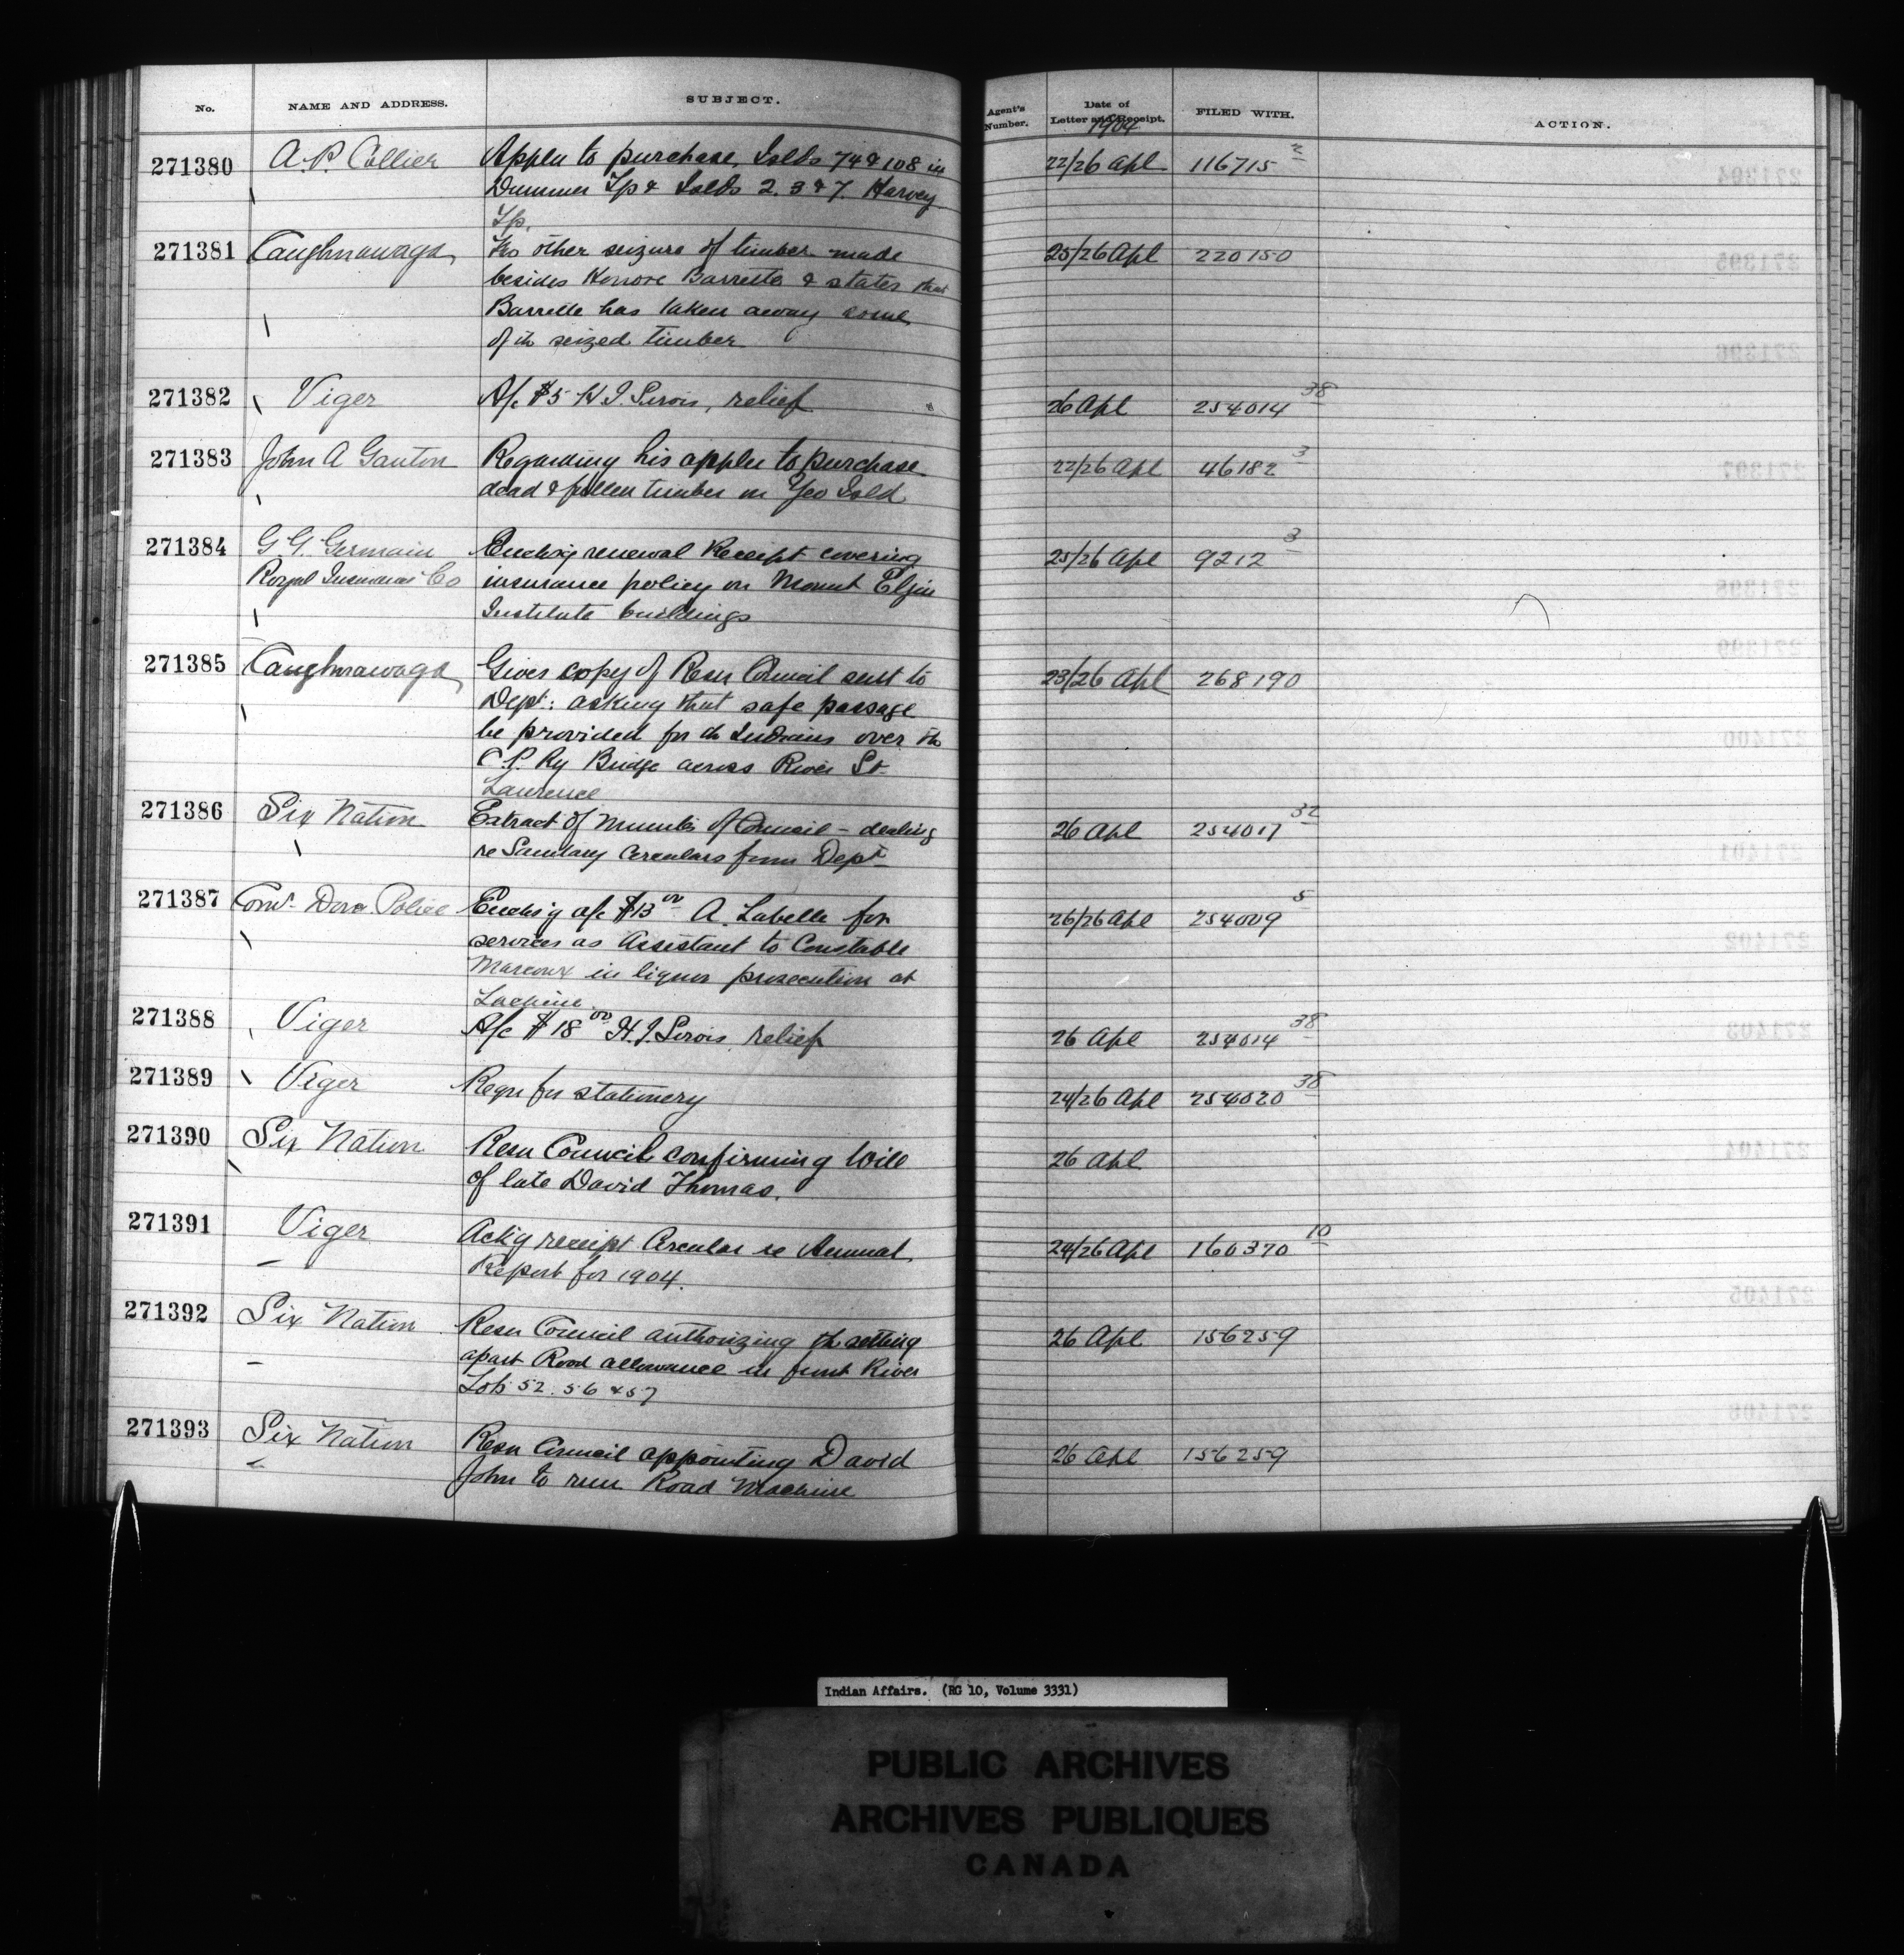 No. NAME AND ADDRESS. SUBJECT. Agent's Number. Date of Letter and Receipt. FILED WITH. ACTION.
1904
271380 A. P. Collier Appln to purchase Islds 74 & 108 in 22/26 Apl 116715 2
Dummer Tp & Islds 2. 3 & 7. Harvey
Tp.
271381 Caughnawaga No other seizure of timber made 25/26 Apl 220150
besides Honore Barrette & states that
Barrette has taken away some
of th seized timber
271382 Viger A/c $5 H J. Sirois, relief 26 Apl 254014 38
271383 John A Ganton Regarding his appln to purchase 22/26 Apl 46182 3
dead & fallen timber on Yeo Isld
271384 G. G. Germain Enclos'g renewal Receipt covering 25/26 Apl 9212 3
Royal Insurance Co insurance policy on Mount Elgin
Institute buildings
271385 Caughnawaga Gives copy of Resn Council sent to 23/26 Apl 268190
Dept: asking that safe passage
be provided for th Indians over th
C. P. Ry Bridge across River St
Laurence
271386 Six Nation Extract of Minutes of Council – dealing 26 Apl 254017 32
re Sanitary Circulars from Dept
271387 Comr Dom Police Enclos'g a/c $13 00 A. Labelle for 26/26 Apl 254009 5
services as Assistant to Constable
Marcoux in liquor prosecution at
Lachine.
271388 Viger A/c $18 00 H. J. Sirois relief 26 Apl 254014 38
271389 Viger Reqn for stationery 24/26 Apl 254020 38
271390 Six Nation Resn Council confirming Will 26 Apl
of late David Thomas.
271391 Viger Ack'g receipt Circular re Annual 24/26 Apl 160370 10
Report for 1904.
271392 Six Nation Resn Council authorizing th setting 26 Apl 156259
apart Road allowance in front River
Lots 52. 56 & 57
271393 Six Nation Resn Council appointing David 26 Apl 156259
John to run Road Machine
Indian Affairs. (RG 10, Volume 3331)
PUBLIC ARCHIVES
ARCHIVES PUBLIQUES
CANADA